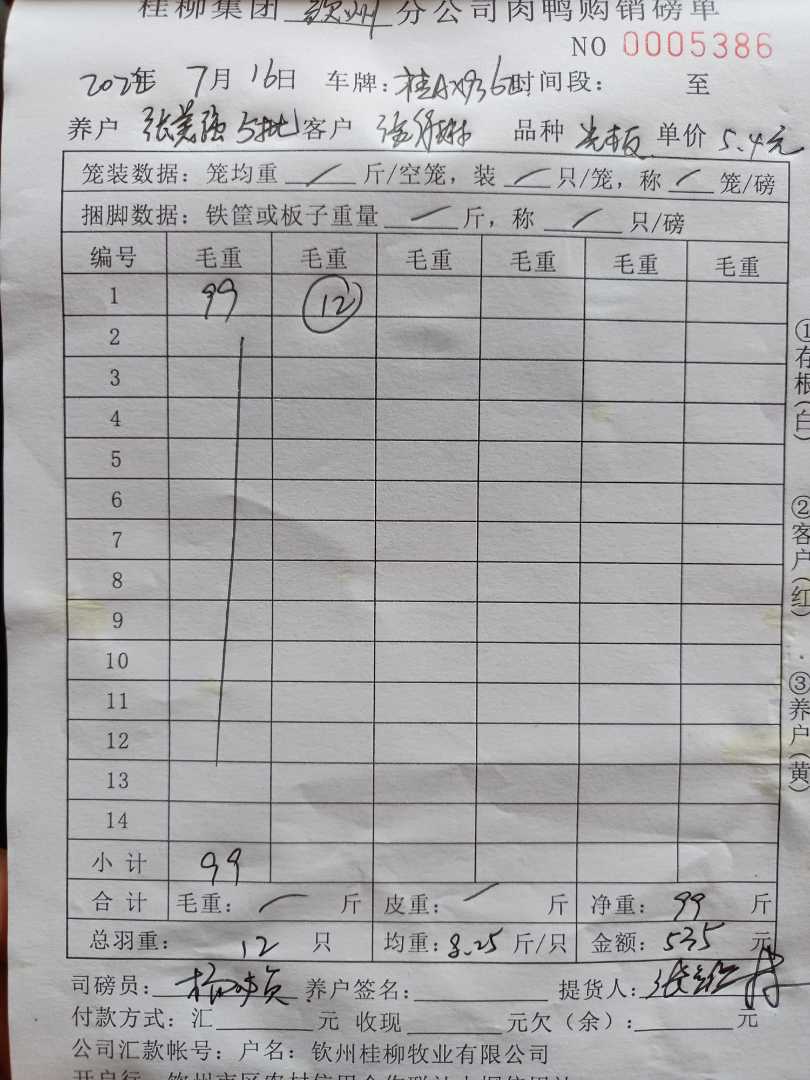 桂柳集团 钦州 分公司肉鸭购销磅单
NO 0005386
年 7月 16日 车牌:桂A 时间段: 至
养户 张 客户 品种 单价 5.4元
笼装数据:笼均重 / 斤/空笼,装 / 只/笼,称 / 笼/磅
捆脚数据:铁筐或板子重量 / 斤,称 / 只/磅
编号 毛重 毛重 毛重 毛重 毛重 毛重
1 99 12
2
3
4
5
6
7
8
9
10
11
12
13
14
小计 99
合计 毛重: / 斤 皮重: / 斤 净重: 99 斤
总羽重: 12 只 均重: 8.25 斤/只 金额: 535 元
司磅员: 养户签名: 提货人:
付款方式:汇 元 收现 元欠(余): 元
公司汇款帐号:户名:钦州桂柳牧业有限公司
①存根(白) ②客户(红) ③养户(黄)